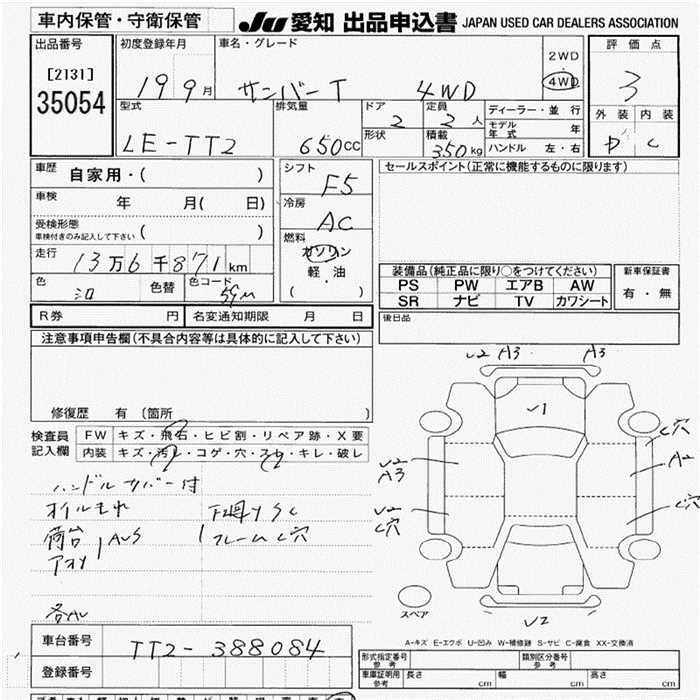 車内保管・守衛保管 JU 愛知 出品申込書 JAPAN USED CAR DEALERS ASSOCIATION
出品番号 初度登録年月 車名・グレード 評価点
[2131] 2WD・4WD
35054 19 9月 サンバーT 4WD 3
型式 排気量 ドア 定員 ディーラー・並行 外装 内装
LE-TT2 650cc 2 2人 モデル年式 年 D C
形状 積載 350kg ハンドル 左・右
車歴 自家用・( ) シフト F5 セールスポイント(正常に機能するものに限ります)
車検 年 月( 日) 冷房 AC
受検形態 ( )
車検付きのみ記入して下さい
燃料 ガソリン
走行 13万6千871km 軽油・( )
色 シロ 色替 色コード
装備品(純正品に限り○をつけてください) 新車保証書
PS PW エアB AW 有・無
SR ナビ TV カワシート
R券 円 名変通知期限 月 日 後日品
注意事項申告欄(不具合内容等は具体的に記入して下さい)
修復歴 有 (箇所 )
検査員記入欄
FW キズ・飛石・ヒビ割・リペア跡・X要
内装 キズ・汚レ・コゲ・穴・スレ・キレ・破レ
ハンドルカバー付
オイルモれ 下廻りSC
荷台 AUS フレームC穴
アオリ
各AU
U2 A3 A3
U1
C穴
A2
U2
A3
U2
C穴
C穴
スペア
U2
A-キズ E-エクボ U-凹み W-補修跡 S-サビ C-腐食 XX-交換済
車台番号 TT2-388084
登録番号
形式指定番号 参考 類別区分番号 参考
車庫証明用 参考 長さ cm 幅 cm 高さ cm